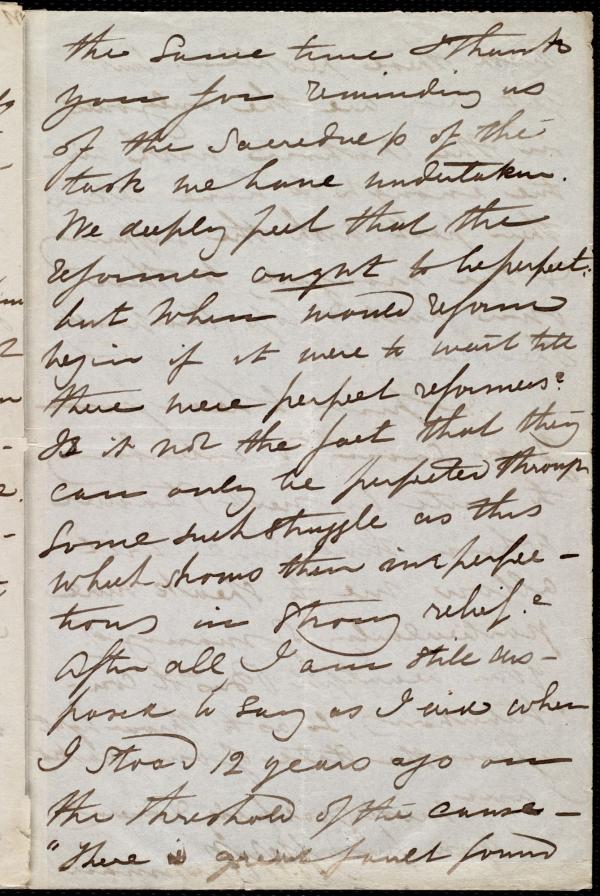 the same time I thank
you for reminding us
of the sacredness of the
task we have undertaken.
We deeply feel that the
reformer ought to be perfect:
but when would reform
begin if it were to wait till
there were perfect reformers?
Is it not the fact that they
can only be perfected through
some such struggle as this
which shows their imperfec-
tions in strong relief?
After all, I am still dis-
posed to say as I did when
I stood 12 years ago on
the threshold of the cause –
"There is great fault found